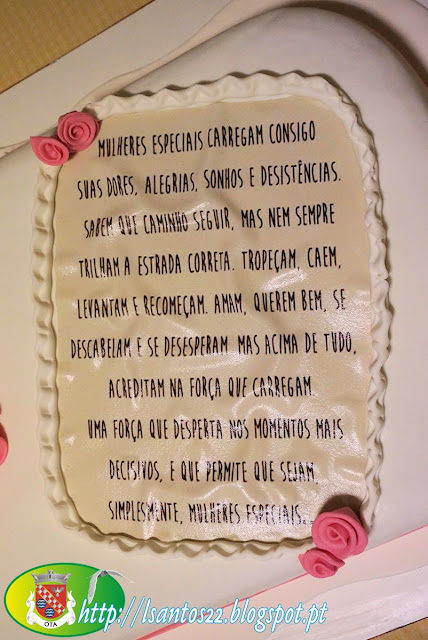 MULHERES ESPECIAIS CARREGAM CONSIGO
SUAS DORES, ALEGRIAS, SONHOS E DESISTÊNCIAS.
SABEM QUE CAMINHO SEGUIR, MAS NEM SEMPRE
TRILHAM A ESTRADA CORRETA. TROPEÇAM, CAEM,
LEVANTAM E RECOMEÇAM. AMAM, QUEREM BEM, SE
DESCABELAM E SE DESESPERAM. MAS ACIMA DE TUDO,
ACREDITAM NA FORÇA QUE CARREGAM.
UMA FORÇA QUE DESPERTA NOS MOMENTOS MAIS
DECISIVOS, E QUE PERMITE QUE SEJAM,
SIMPLESMENTE, MULHERES ESPECIAIS...
OTA
http://lsantos22.blogspot.pt